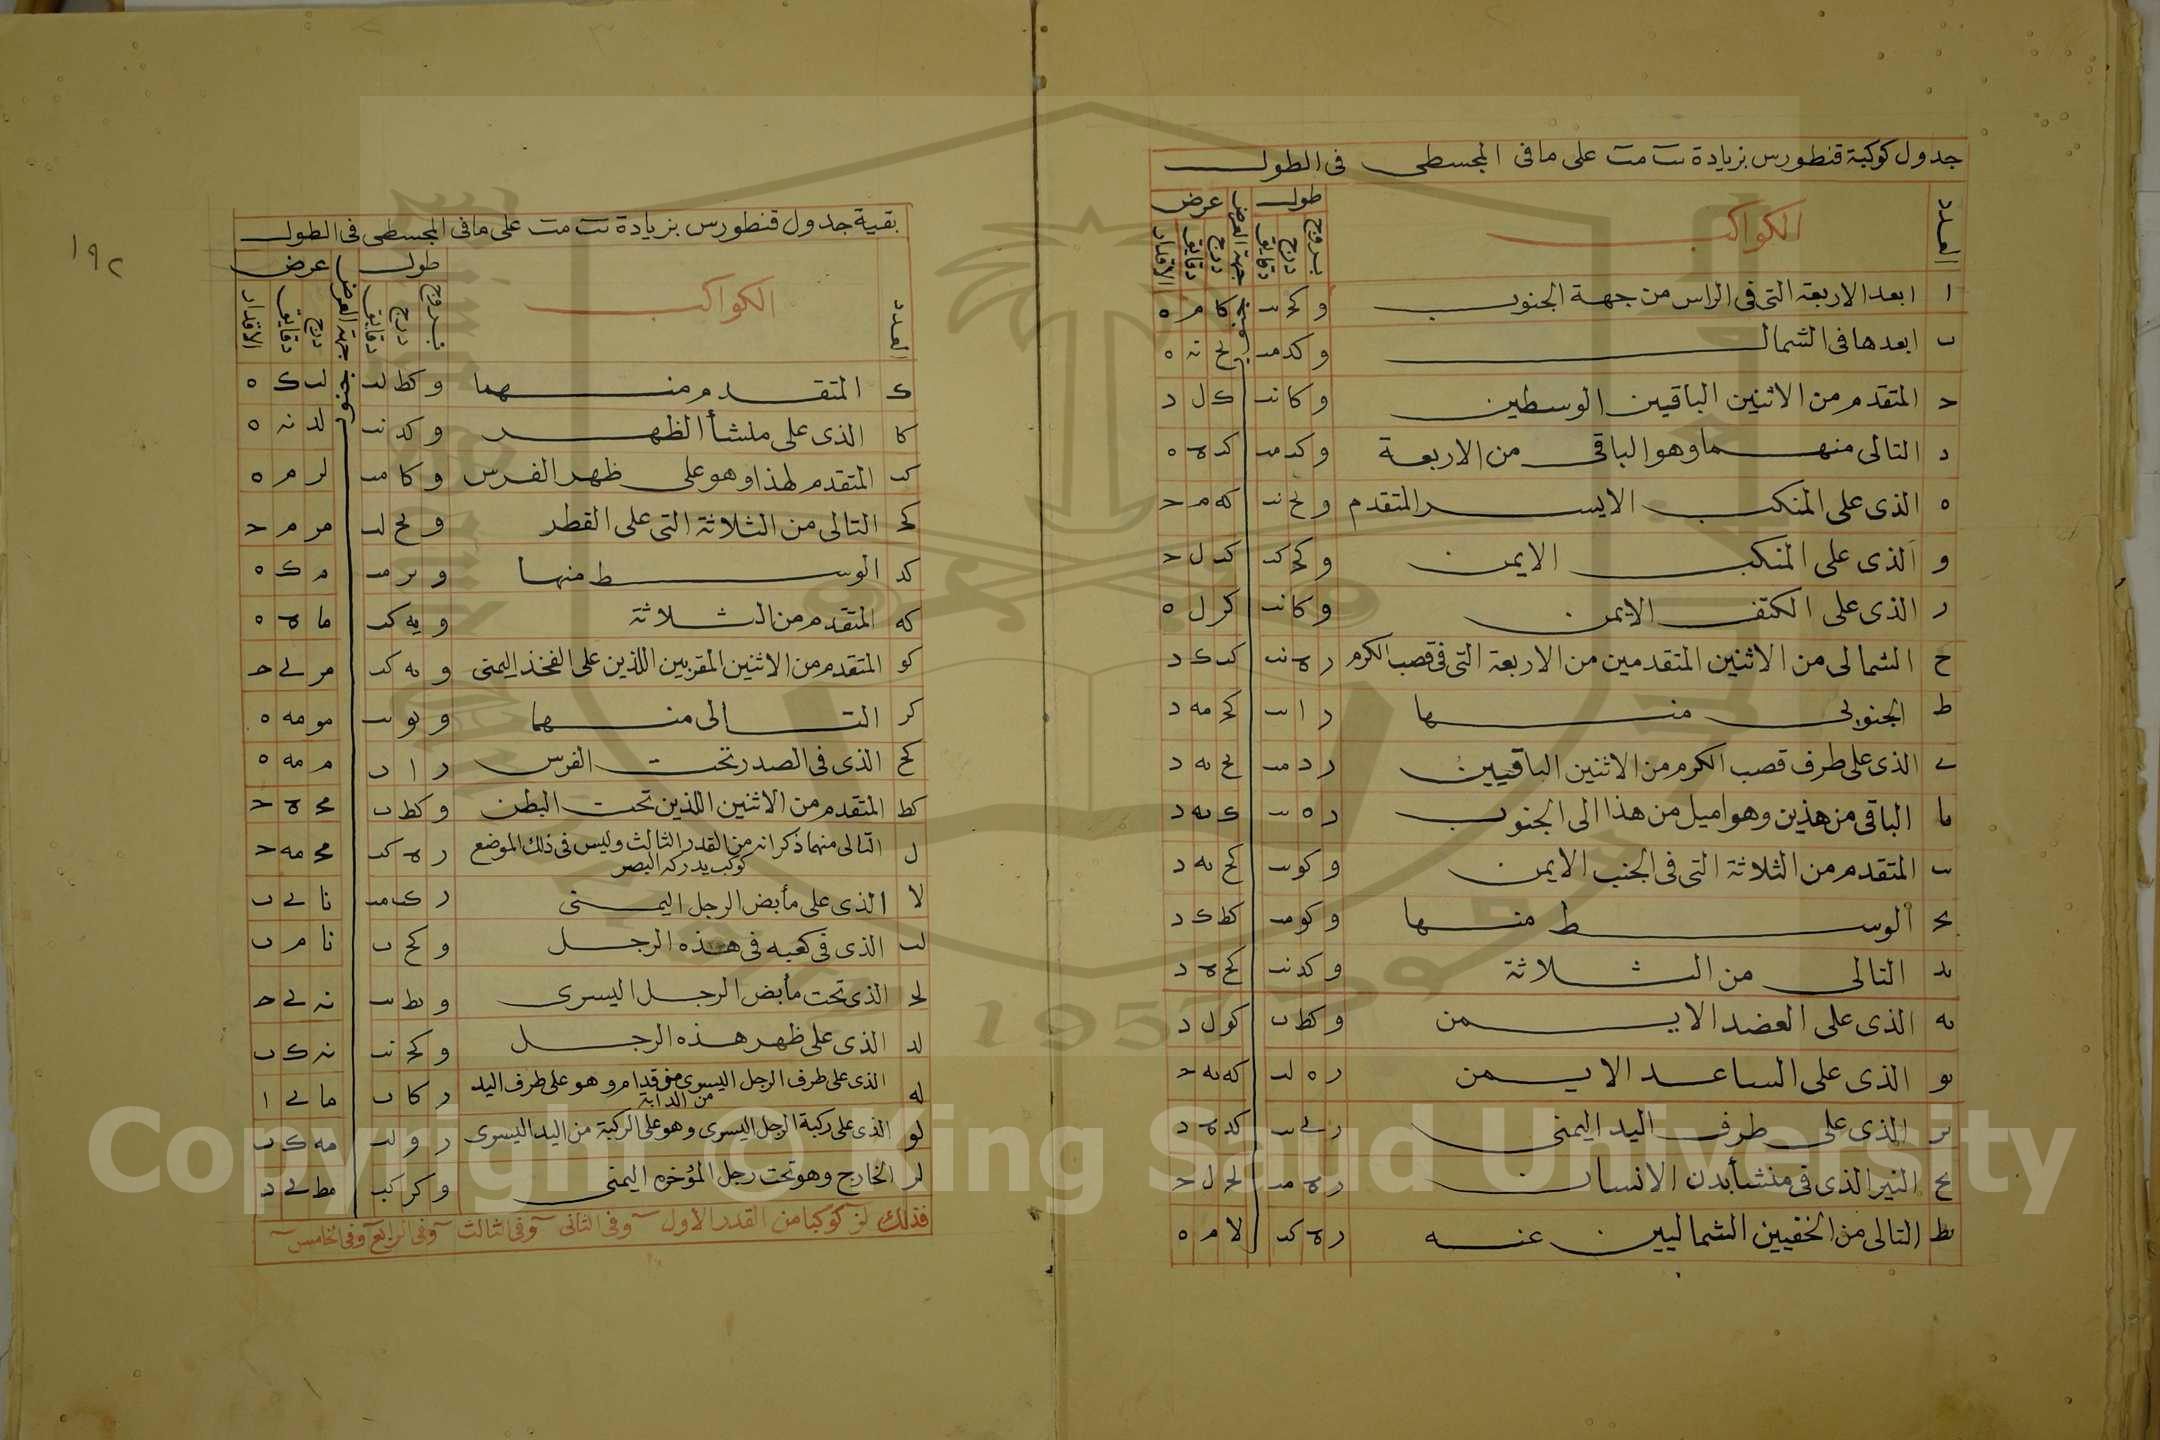 جدول كوكبة قنطورس بزيادة ىب مب على ما فى المجسطى فى الطول
العدد الكواكب طول جهة العرض عرض
بروج درج دقايق درج دقايق الاقدار
ا ابعد الاربعة التى فى الراس من جهة الجنوب و كح ىب جنوبى كا م ه
ب ابعدها فى الشمال و كد مب يح نه ه
ح المتقدم من الاثنين الباقيين الوسطين و كا نب ك ل د
د التالى منهما وهو الباقى من الاربعة و كد مب كد ه ه
ه الذى على المنكب الايسر المتقدم و يح نب كه م ح
و الذى على المنكب الايمن و كح كد كد ل ح
ر الذى على الكتف الايمن و كا نب كر ل ه
ح الشمالى من الاثنين المتقدمين من الاربعة التى فى قصب الكرم ر ه نب كب ك د
ط الجنوبى منها ر ا ىب كح مه د
ى الذى على طرف قصب الكرم من الاثنين الباقيين ر د مب يح يه د
يا الباقى من هذين وهو اميل من هذا الى الجنوب ر ه ىب ك يه د
يب المتقدم من الثلاثة التى فى الجنب الايمن و كو ىب كح يه د
يح الوسط منها و كو مب كط ك د
يد التالى من الثلاثة و كد نب كح ه د
يه الذى على العضد الايمن و كط ب كو ل د
يو الذى على الساعد الايمن ر ه لب كه يه ح
ير الذى على طرف اليد اليمنى ر ى ىب كد ه د
يح النير الذى فى منشأ بدن الانسان ر ه مب لح ل ح
يط التالى من الخفيين الشماليين عنه ر ه كد لا م ه
١٩٢
بقية جدول قنطورس بزيادة ىب مب على ما فى المجسطى فى الطول
العدد الكواكب طول جهة العرض عرض
بروج درج دقايق درج دقايق الاقدار
ك المتقدم منهما و كط لب جنوبى لب ك ه
كا الذى على منشأ الظهر و كد نب لد نه ه
كب المتقدم لهذا وهو على ظهر الفرس و كا مب لر م ه
كح التالى من الثلاثة التى على القطر و يح لب مر م ح
كد الوسط منها و ير مب م ك ه
كه المتقدم من الثلاثة و يه كد ما ه ه
كو المتقدم من الاثنين المقربين اللذين على الفخذ اليمنى و يه كد مر ى ح
كر التالى منهما و يو ىب مو مه ه
كح الذى فى الصدر تحت الفرس ر ا ب م مه ه
كط المتقدم من الاثنين اللذين تحت البطن و كط ب مح ه ح
ل التالى منهما ذكر انه من القدر الثالث وليس فى ذلك الموضع ر ه كد مح مه ح
كوكب يدركه البصر
لا الذى على مأبض الرجل اليمنى ر ك مب نا ى ب
لب الذى فى كعبه فى هذه الرجل و كح ب نا م ب
لح الذى تحت مأبض الرجل اليسرى و يط ىب نه ى ح
لد الذى على ظهر هذه الرجل و كح نب نه ك ب
له الذى على طرف الرجل اليسرى من قدام وهو على طرف اليد ر كا ب ما ى ا
من الدابة
لو الذى على ركبة الرجل اليسرى وهو على الركبة من اليد اليسرى ر و لب مه ك ب
لر الخارج وهو تحت رجل المؤخرة اليمنى و كر كب مط ى د
فذلك لز كوكبا من القدر الاول وفى الثانى وفى الثالث وفى الرابع وفى الخامس
1957
Copyright © King Saud University